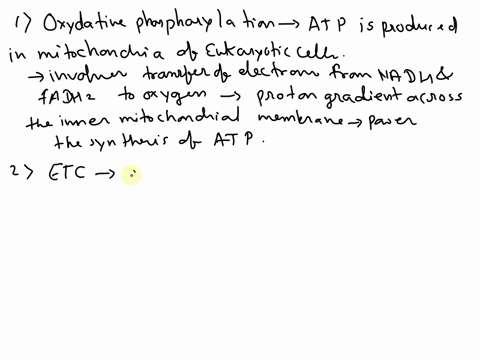 1) Oxydative phosphorylation → ATP is produced
in mitochondria of Eukaryotic cell.
→ involves transfer of electrons from NADH &
FADH2 to oxygen → proton gradient across
the inner mitochondrial membrane → power
the synthesis of ATP.
2) ETC →